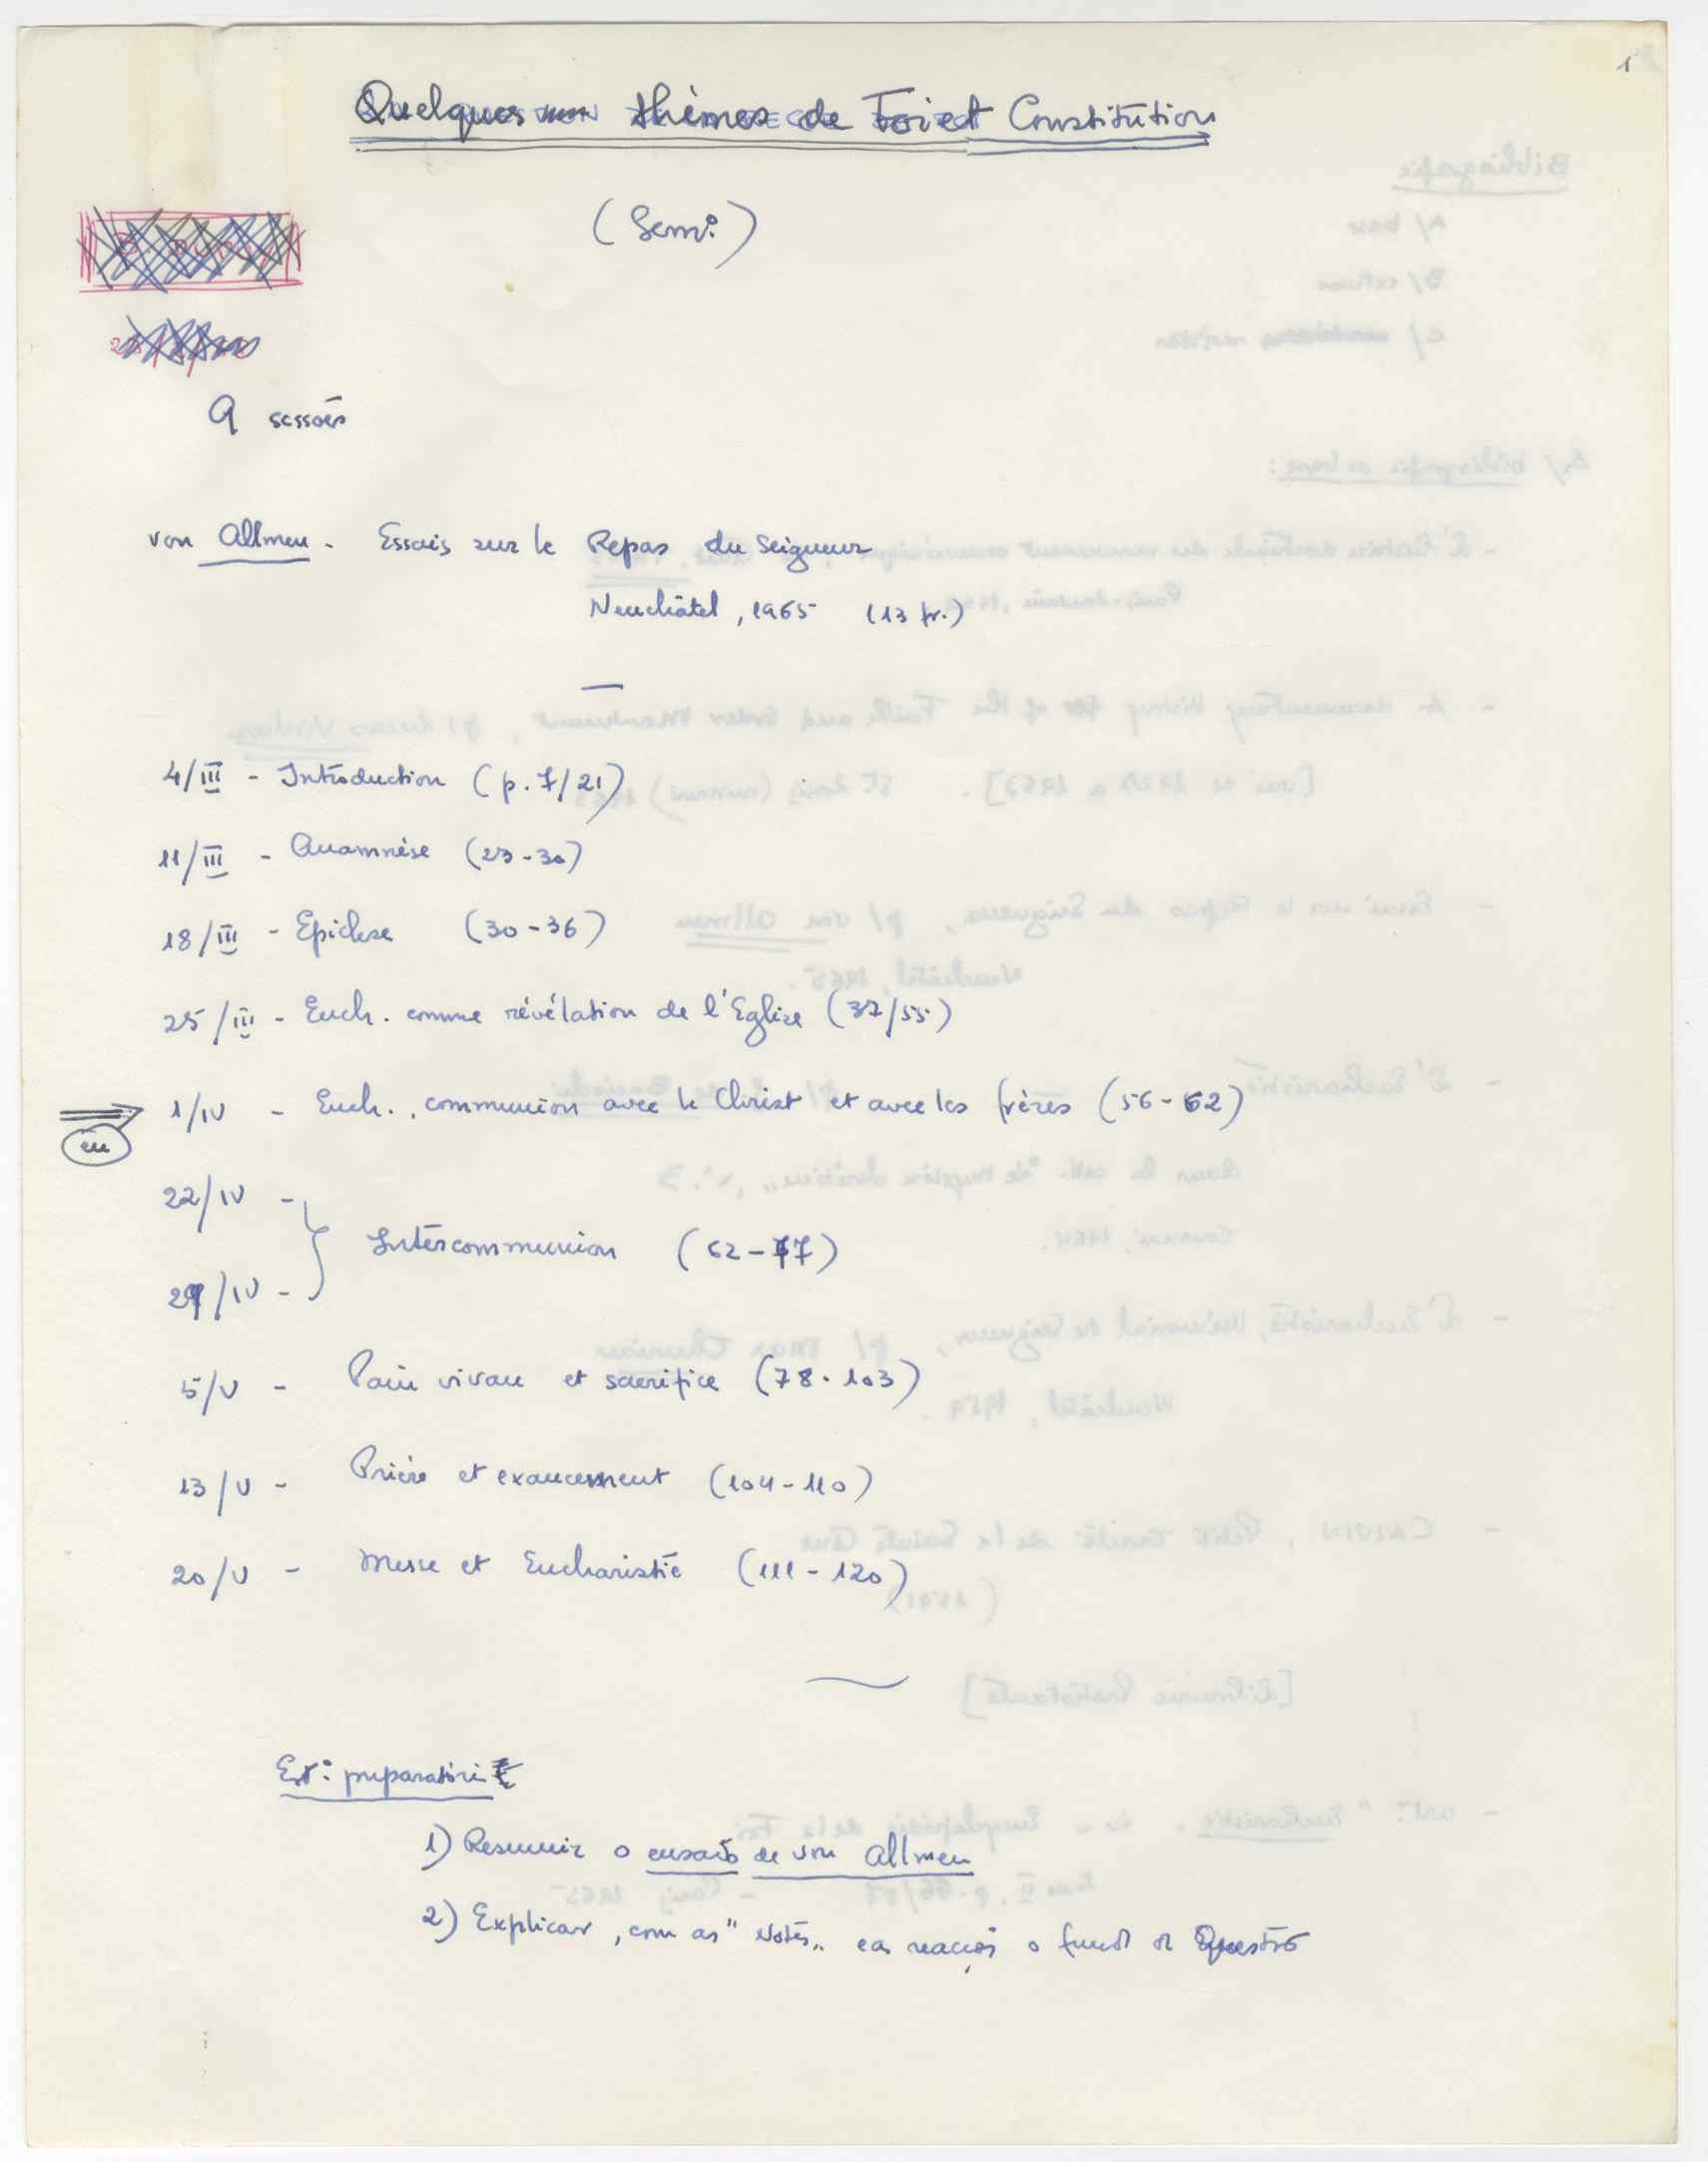 1
Quelques thèmes de Foi et Constitution
(Semº)
9 sessões
von Allmen - Essais sur le Repas du Seigneur
Neuchâtel, 1965 (13 fr.)
4/III - Introduction (p. 7/21)
11/III - Anamnèse (23-30)
18/III - Epiclese (30-36)
25/III - Euch. comme révélation de l'Eglise (37/55)
1/IV - Euch., communion avec le Christ et avec les frères (56-62)
eu
22/IV -
Intercommunion (62-77)
29/IV -
5/V - Pain vivant et sacrifice (78-103)
13/V - Prière et exaucement (104-110)
20/V - Messe et Eucharistie (111-120)
Estº preparatóri
1) Resumir o ensaio de von Allmen
2) Explicar, com as "Notes" e as reacções o fundo da Questão